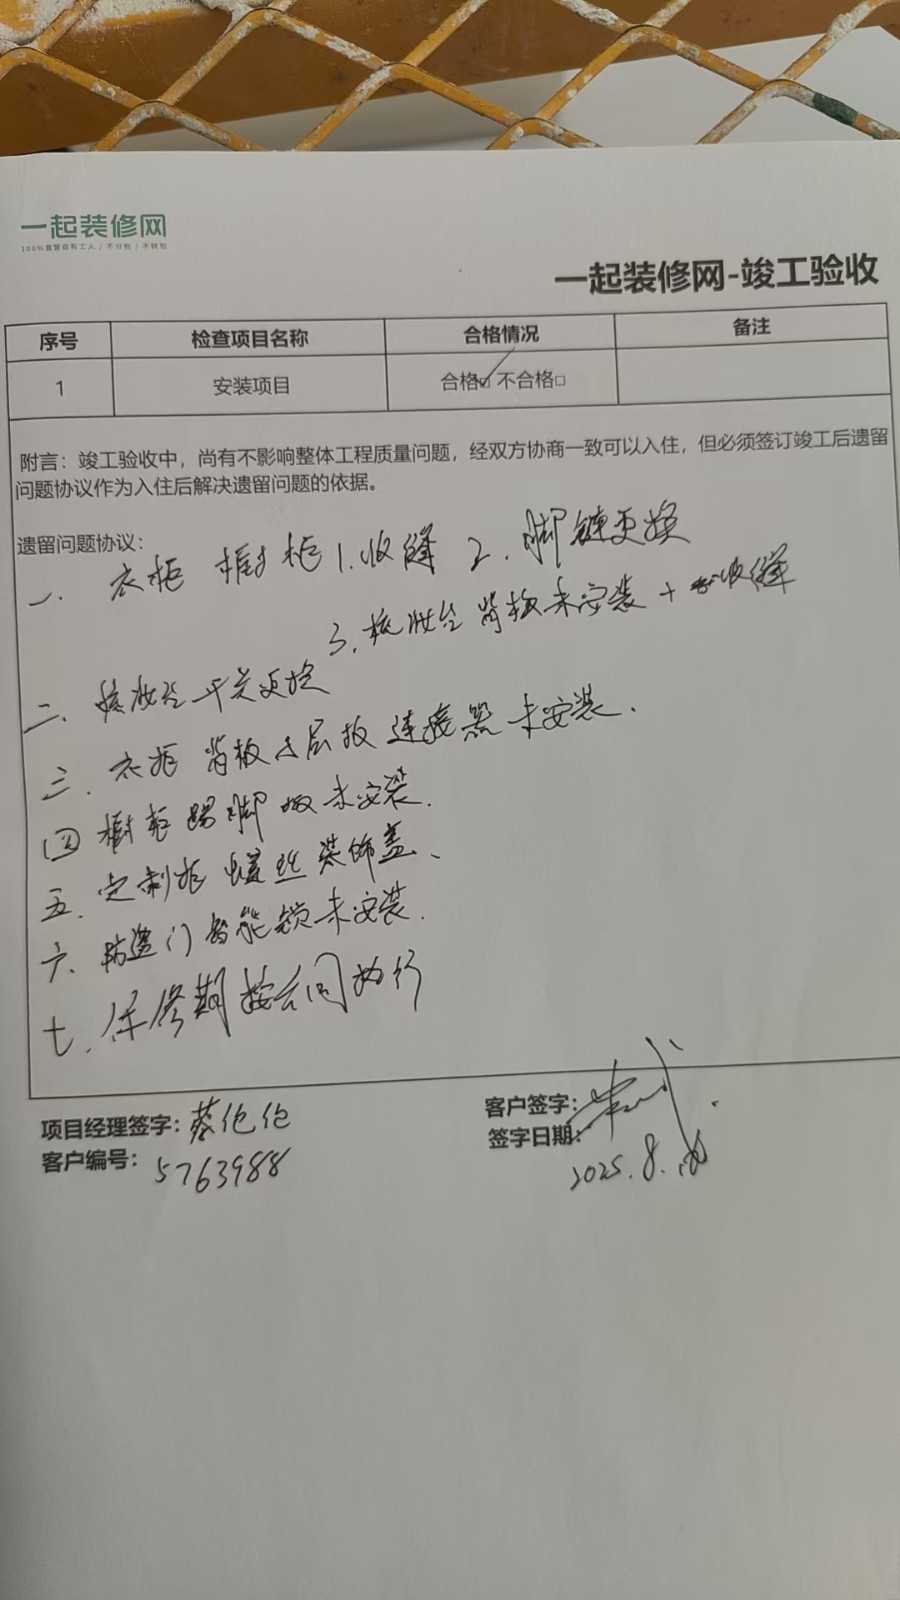 一起装修网
100%直营自有工人 / 不分包 / 不转包
一起装修网-竣工验收
序号 检查项目名称 合格情况 备注
1 安装项目 合格☑ 不合格□
附言：竣工验收中，尚有不影响整体工程质量问题，经双方协商一致可以入住，但必须签订竣工后遗留
问题协议作为入住后解决遗留问题的依据。
遗留问题协议：
一、衣柜 橱柜 1.收缝 2.脚链更换
3.梳妆台背板未安装+收缝
二、梳妆台开关更换
三.衣柜背板 层板连接器未安装.
四 橱柜踢脚板未安装.
五.定制柜螺丝装饰盖、
六、防盗门智能锁未安装.
七.保修期按合同执行
项目经理签字：蔡伦伦
客户签字：
客户编号：5763988
签字日期：
2025.8.